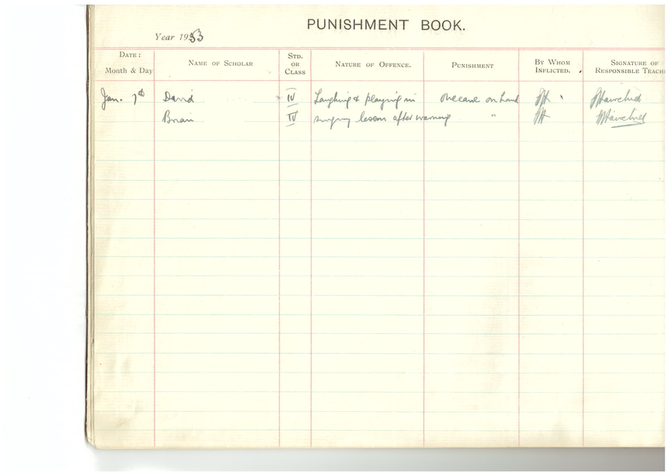 PUNISHMENT BOOK.
Year 1953
DATE: Month & Day
NAME OF SCHOLAR
STD. OR CLASS
NATURE OF OFFENCE.
PUNISHMENT
BY WHOM INFLICTED.
SIGNATURE OF RESPONSIBLE TEACH
Jan. 7th David IV Laughing & playing in one cane on hand
Brian IV singing lesson after warning "